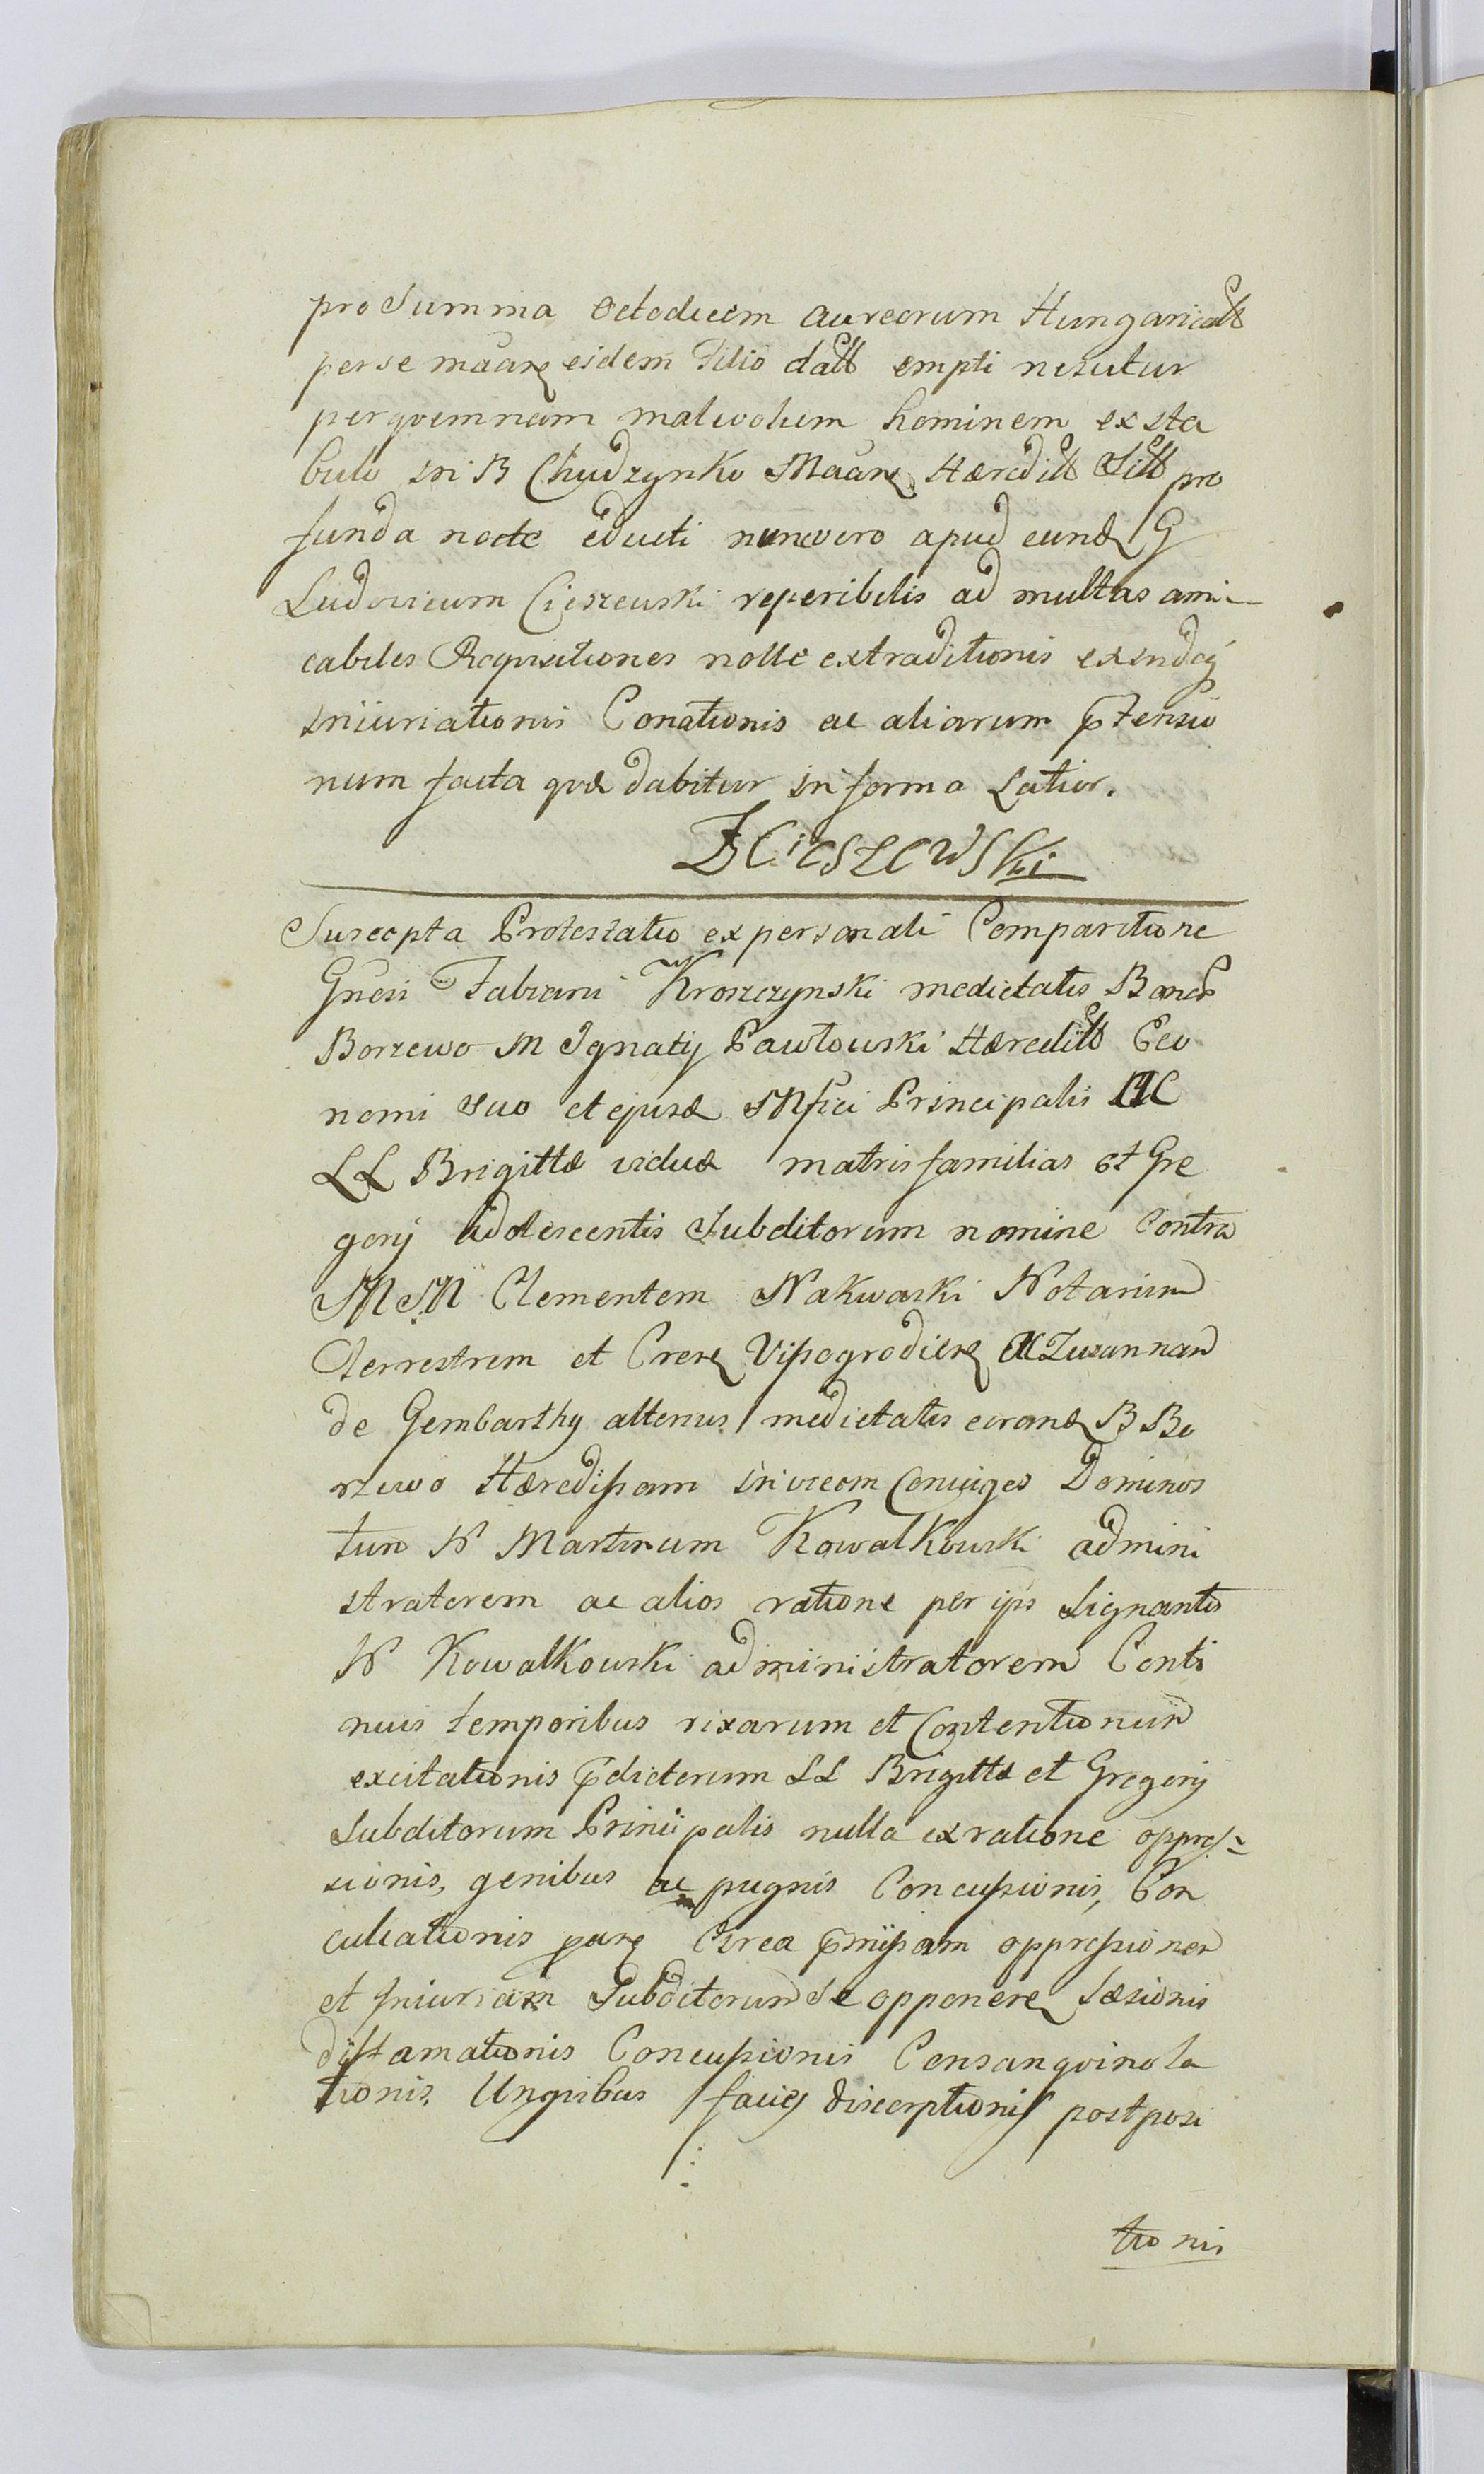 pro Summa octodecem aureorum Hungarical
per se maärq eidem Filio datt empti nesutur
per qvemnam malevolum hominem ex sta
bulo in B Chudzynko Maärq Hæreditt Sitt pro
funda nocte educti nunc vero apud eund G
Ludovicum Cieszewski reperibilis ad multas ami-
cabiles Reqvisitiones nolle extraditionis exindeq
iniuriationis Conationis ac aliarum ptensio
num facta qvæ dabitur in forma Latior.
Cieszewski
Suscepta Protestatio ex personali Comparitione
Gnosi Fabiani Kroszczynski medietatis Bonor
Borzewo M Ignatij Pawlowski Hæreditt Eco
nomi suo et ejusd Mfici Principalis AC
LL Brigittæ viduæ matris familias et Gre
gorij adolescentis Subditorum nomine Contra
M M Clementem Nakwaski Notarium
Terrestrem et Crem Vissogrodiem AC Zuzannam
de Gembarthy alterius medietatis eorund B Bo
rzewo Hæredissam invicem Coniuges Dominos
tum N Martinum Kowalkowski admini
stratorem ac alios ratione per ips Signantr
N Kowalkowski administratorem Conti
nuis temporibus rixarum et Contentionum
excitationis pdictorum LL Brigittæ et Gregorij
Subditorum Principalis nulla ex ratione oppres-
sionis, genibus ac pugnis Concussionis, Con
culcationis Circa pmissam oppressionem
et iniuriam Subditorum se opponere Læsionis
diffamationis Concussionis Consangvinola
tionis, Ungvibus faciei discerptionis postposi
tionis